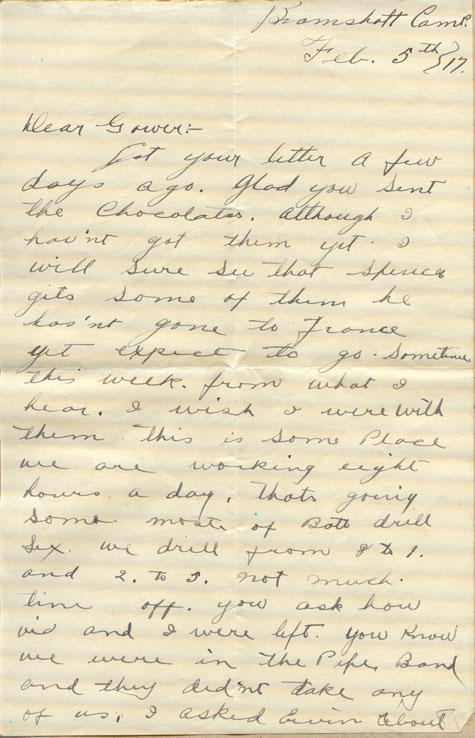 Bramshott Camp.
Feb. 5th/17.
Dear Gower:-
Got your letter a few
days ago. Glad you sent
the Chocolates. although I
hav'nt got them yet. I
will sure see that Spence
gits some of them he
has'nt gone to France
yet expect to go. Sometime
this week. from what I
hear. I wish I were with
them. this is some Place
we are working eight
hours a day. thats going
some. moste of Batt drill
Six. we drill from 8 to 1.
and 2. to 5. not much.
time off. you ask how
vic and I were left. you know
we were in the Pipe Band
and they did'nt take any
of us. I asked about